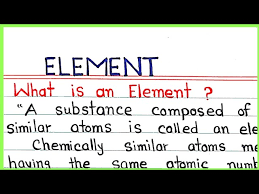 ELEMENT
What is an Element ?
"A substance composed of
similar atoms is called an ele
Chemically similar atoms me
having the same atomic numb